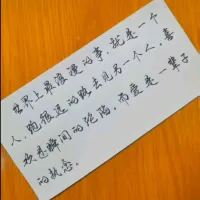 世界上最浪漫的事，就是一个
人，跑很远的路去见另一个人，喜
欢是瞬间的沦陷，而爱是一辈子
的执恋。